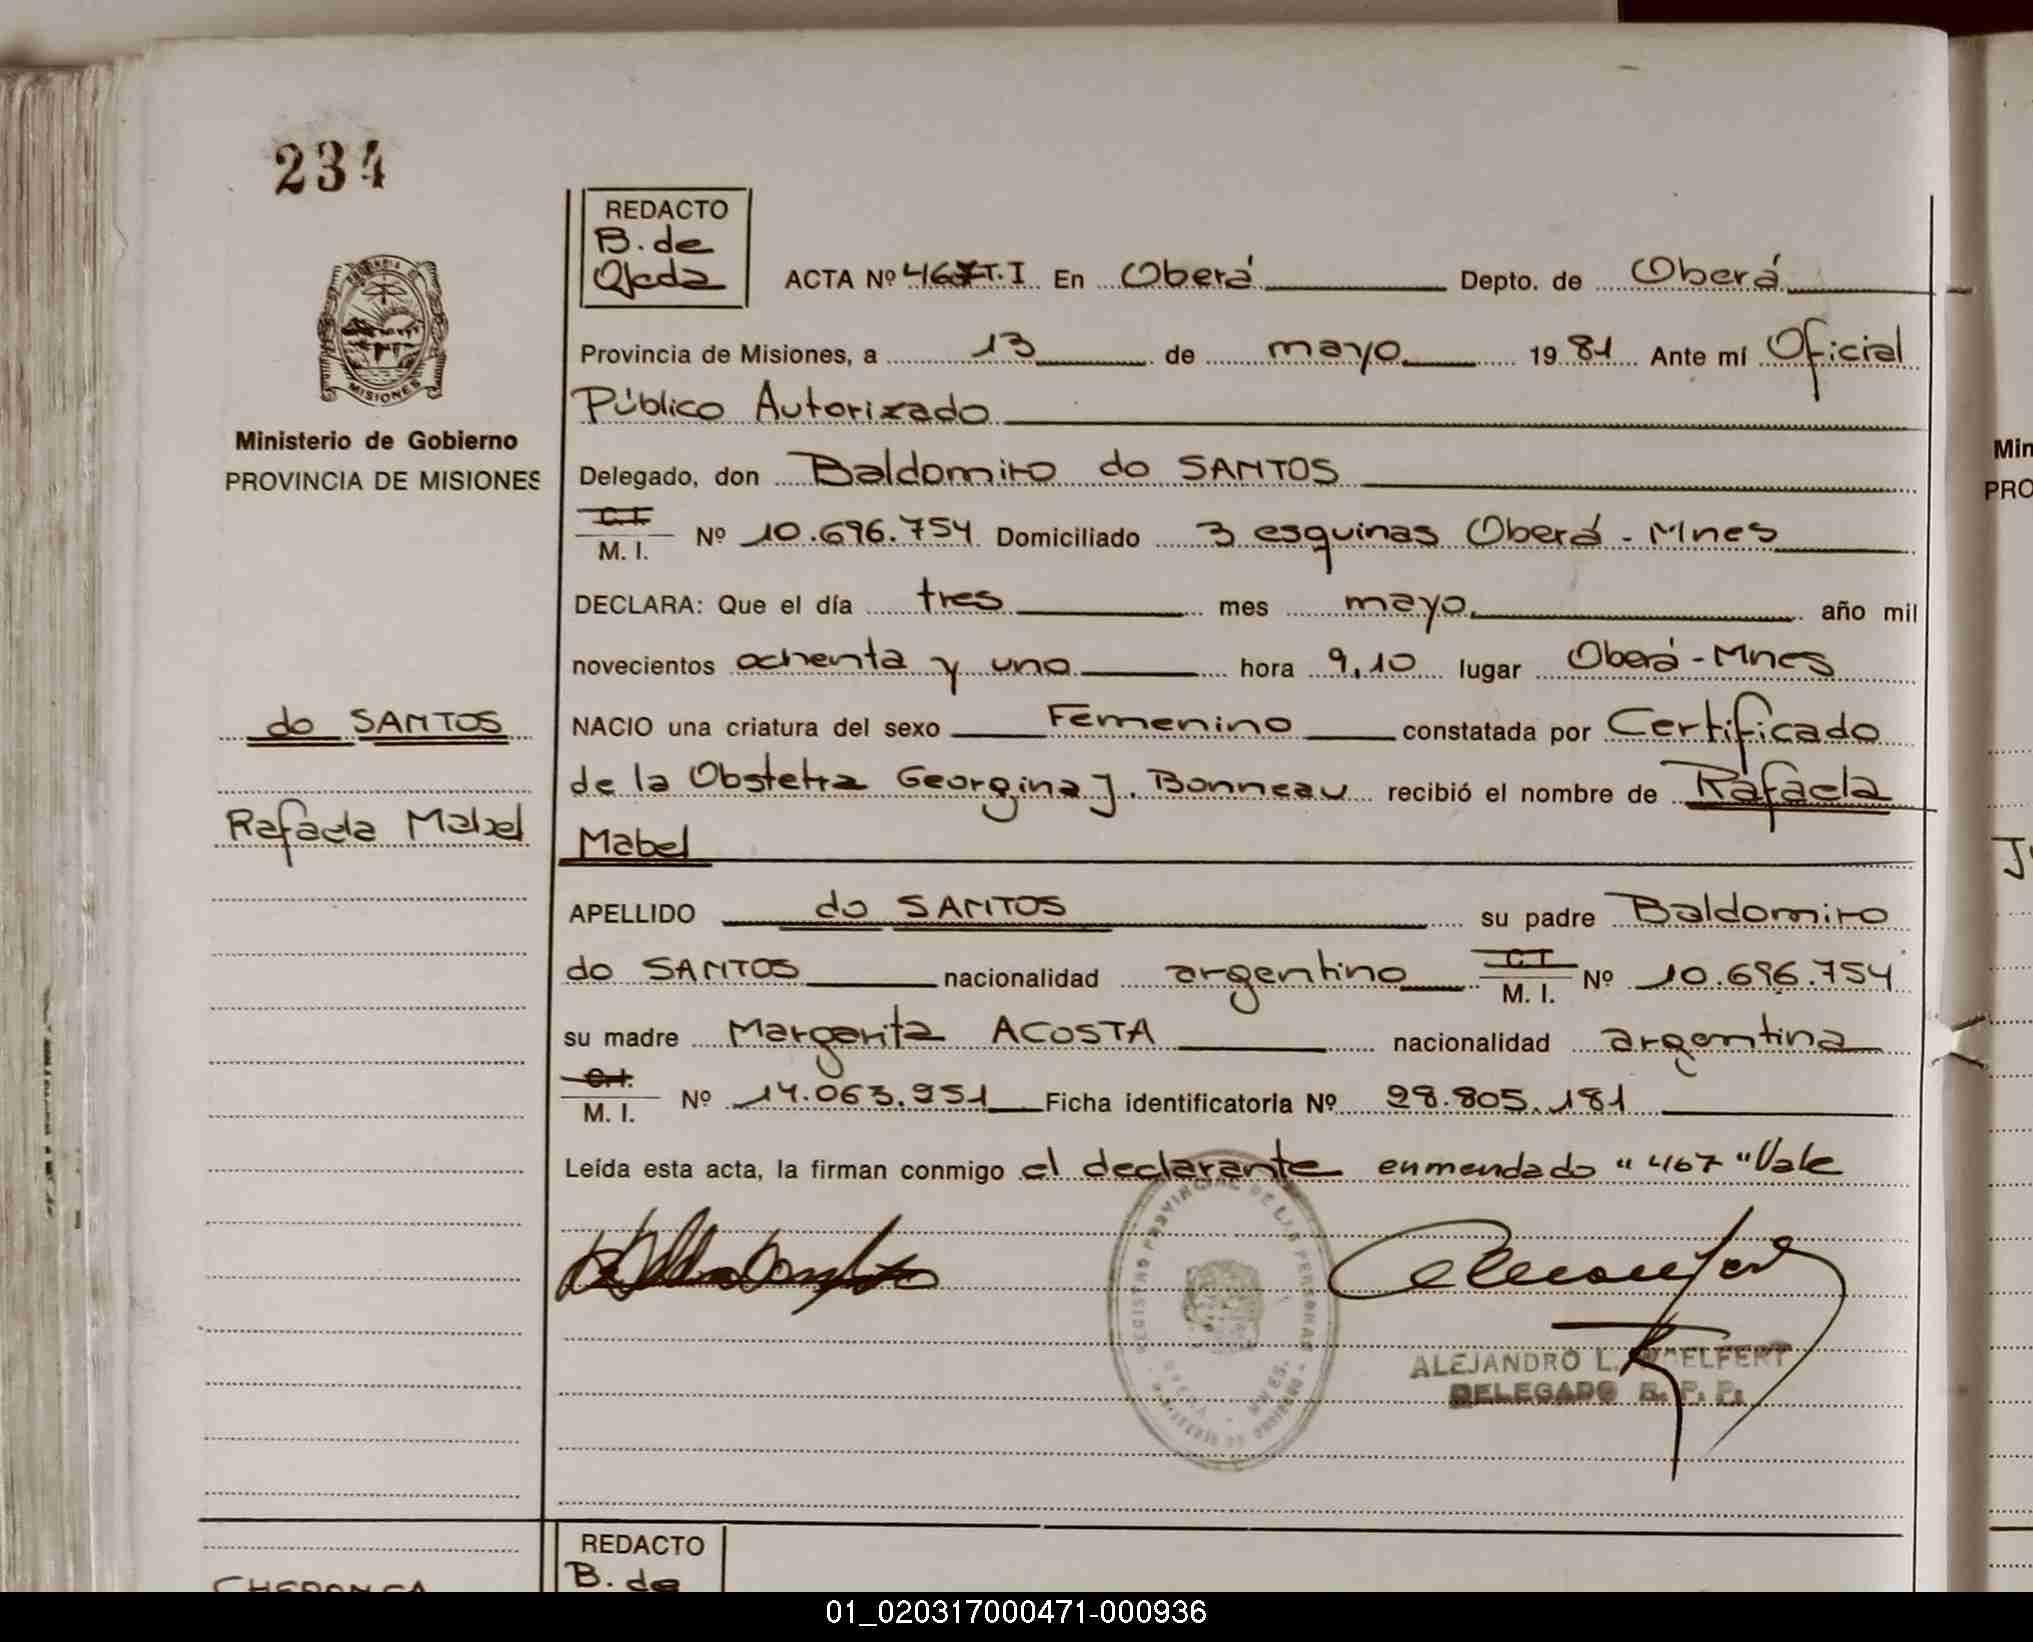 234
REDACTO
B. de
Ojeda
ACTA Nº 467 T.I En Oberá Depto. de Oberá
Provincia de Misiones, a 13 de mayo 1981 Ante mí Oficial
Público Autorizado
MISIONES
Ministerio de Gobierno
PROVINCIA DE MISIONES
Delegado, don Baldomiro do SANTOS
C.I.
M. I. Nº 10.696.754 Domiciliado 3 esquinas Oberá - Mnes
DECLARA: Que el día tres mes mayo año mil
novecientos ochenta y uno hora 9,10 lugar Oberá - Mnes
do SANTOS
Rafaela Mabel
NACIO una criatura del sexo Femenino constatada por Certificado
de la Obstetra Georgina J. Bonneau recibió el nombre de Rafaela
Mabel
APELLIDO do SANTOS su padre Baldomiro
do SANTOS nacionalidad argentino C.I. M. I. Nº 10.696.754
su madre Margarita ACOSTA nacionalidad argentina
C.I.
M. I. Nº 14.063.951 Ficha identificatoria Nº 28.805.181
Leída esta acta, la firman conmigo el declarante enmendado "467" Vale
REGISTRO PROVINCIAL DE LAS PERSONAS
ALEJANDRO L.
DELEGADO R. P. P.
REDACTO
B. de
Min
PRO
01_020317000471-000936